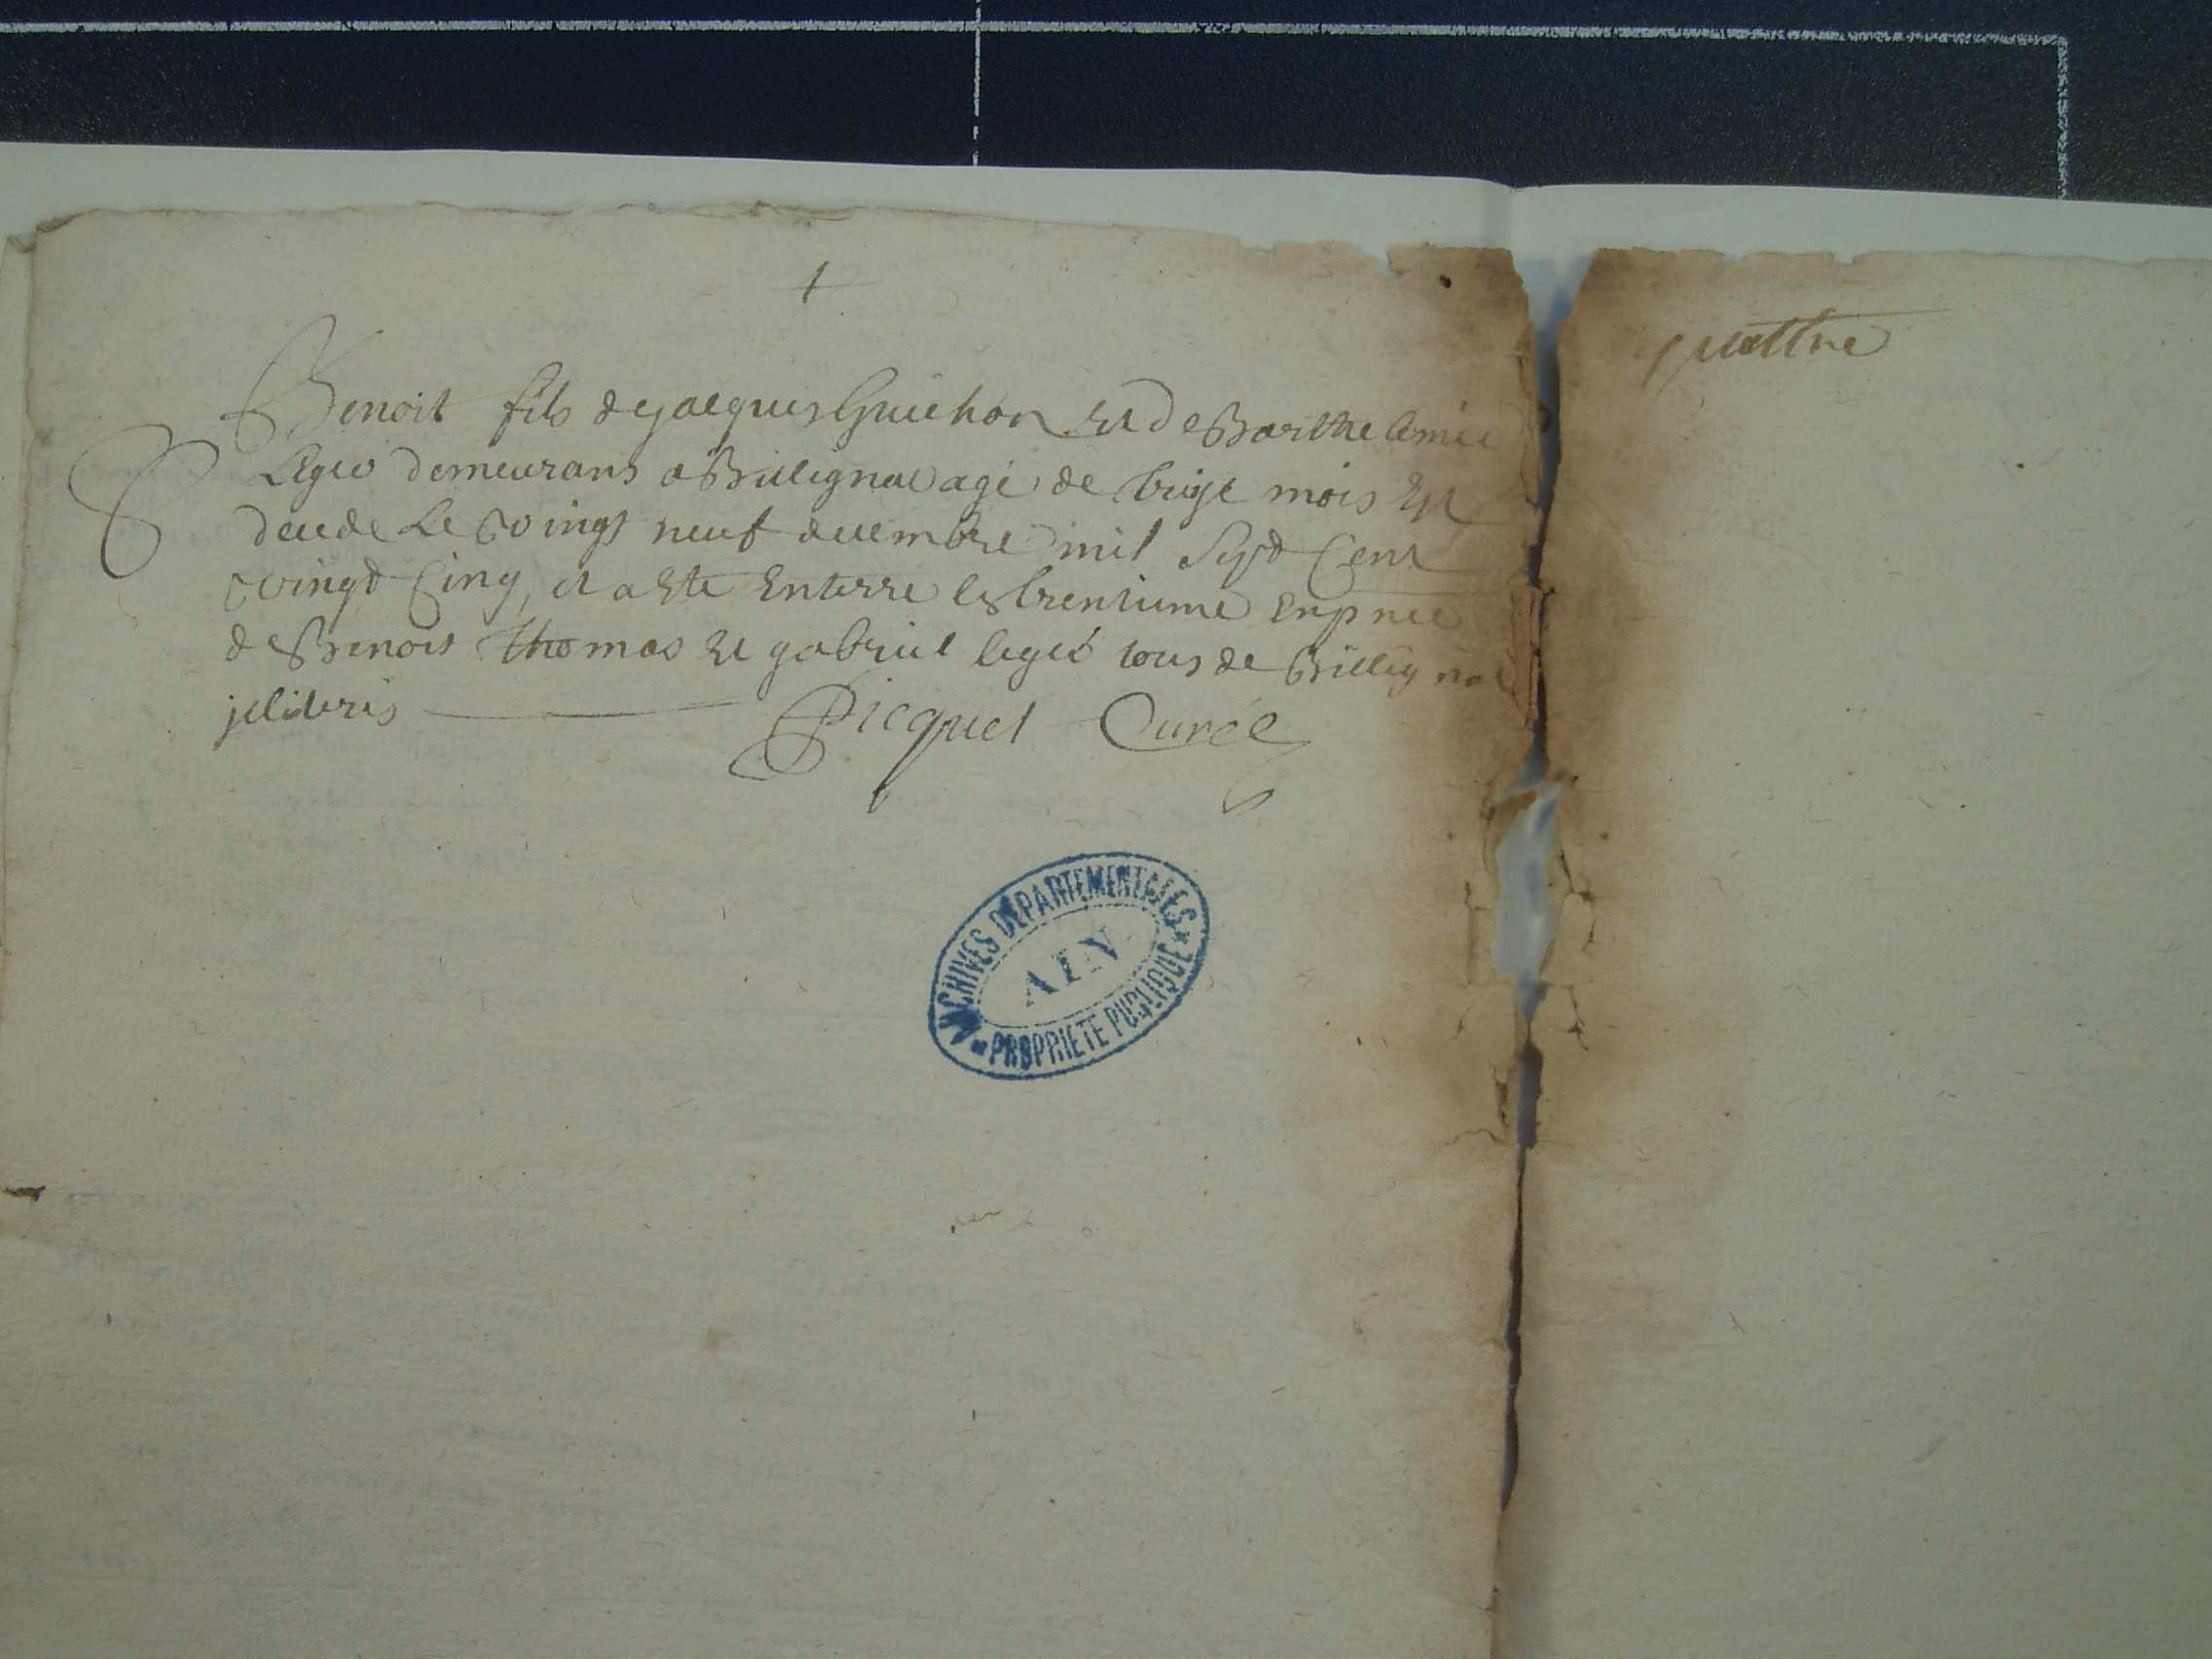 Benoit fils de jacques Guichon et de Barthelemie
Legeo demeurans a Billignac agé de treize mois Est
decede Le Vingt neuf decembre mil Sept Cent
Vingt Cinq, et a Este Enterre le trentieme En pnce
de Benoit Thomas et gabriel legeo tous de Billignac
jlliteris
Picquet Curée
quattre
ARCHIVES DEPARTEMENTALES
AIN
PROPRIETE PUBLIQUE